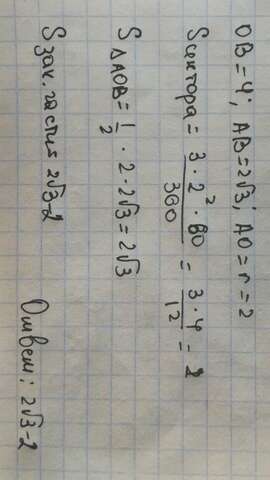 OB = 4; AB = 2√3; AO = r = 2
Sсектора = 3 · 2² · 60 / 360 = 3 · 4 / 12 = 2
S△AOB = 1/2 · 2 · 2√3 = 2√3
Sзак. части = 2√3 - 2
Ответ: 2√3 - 2